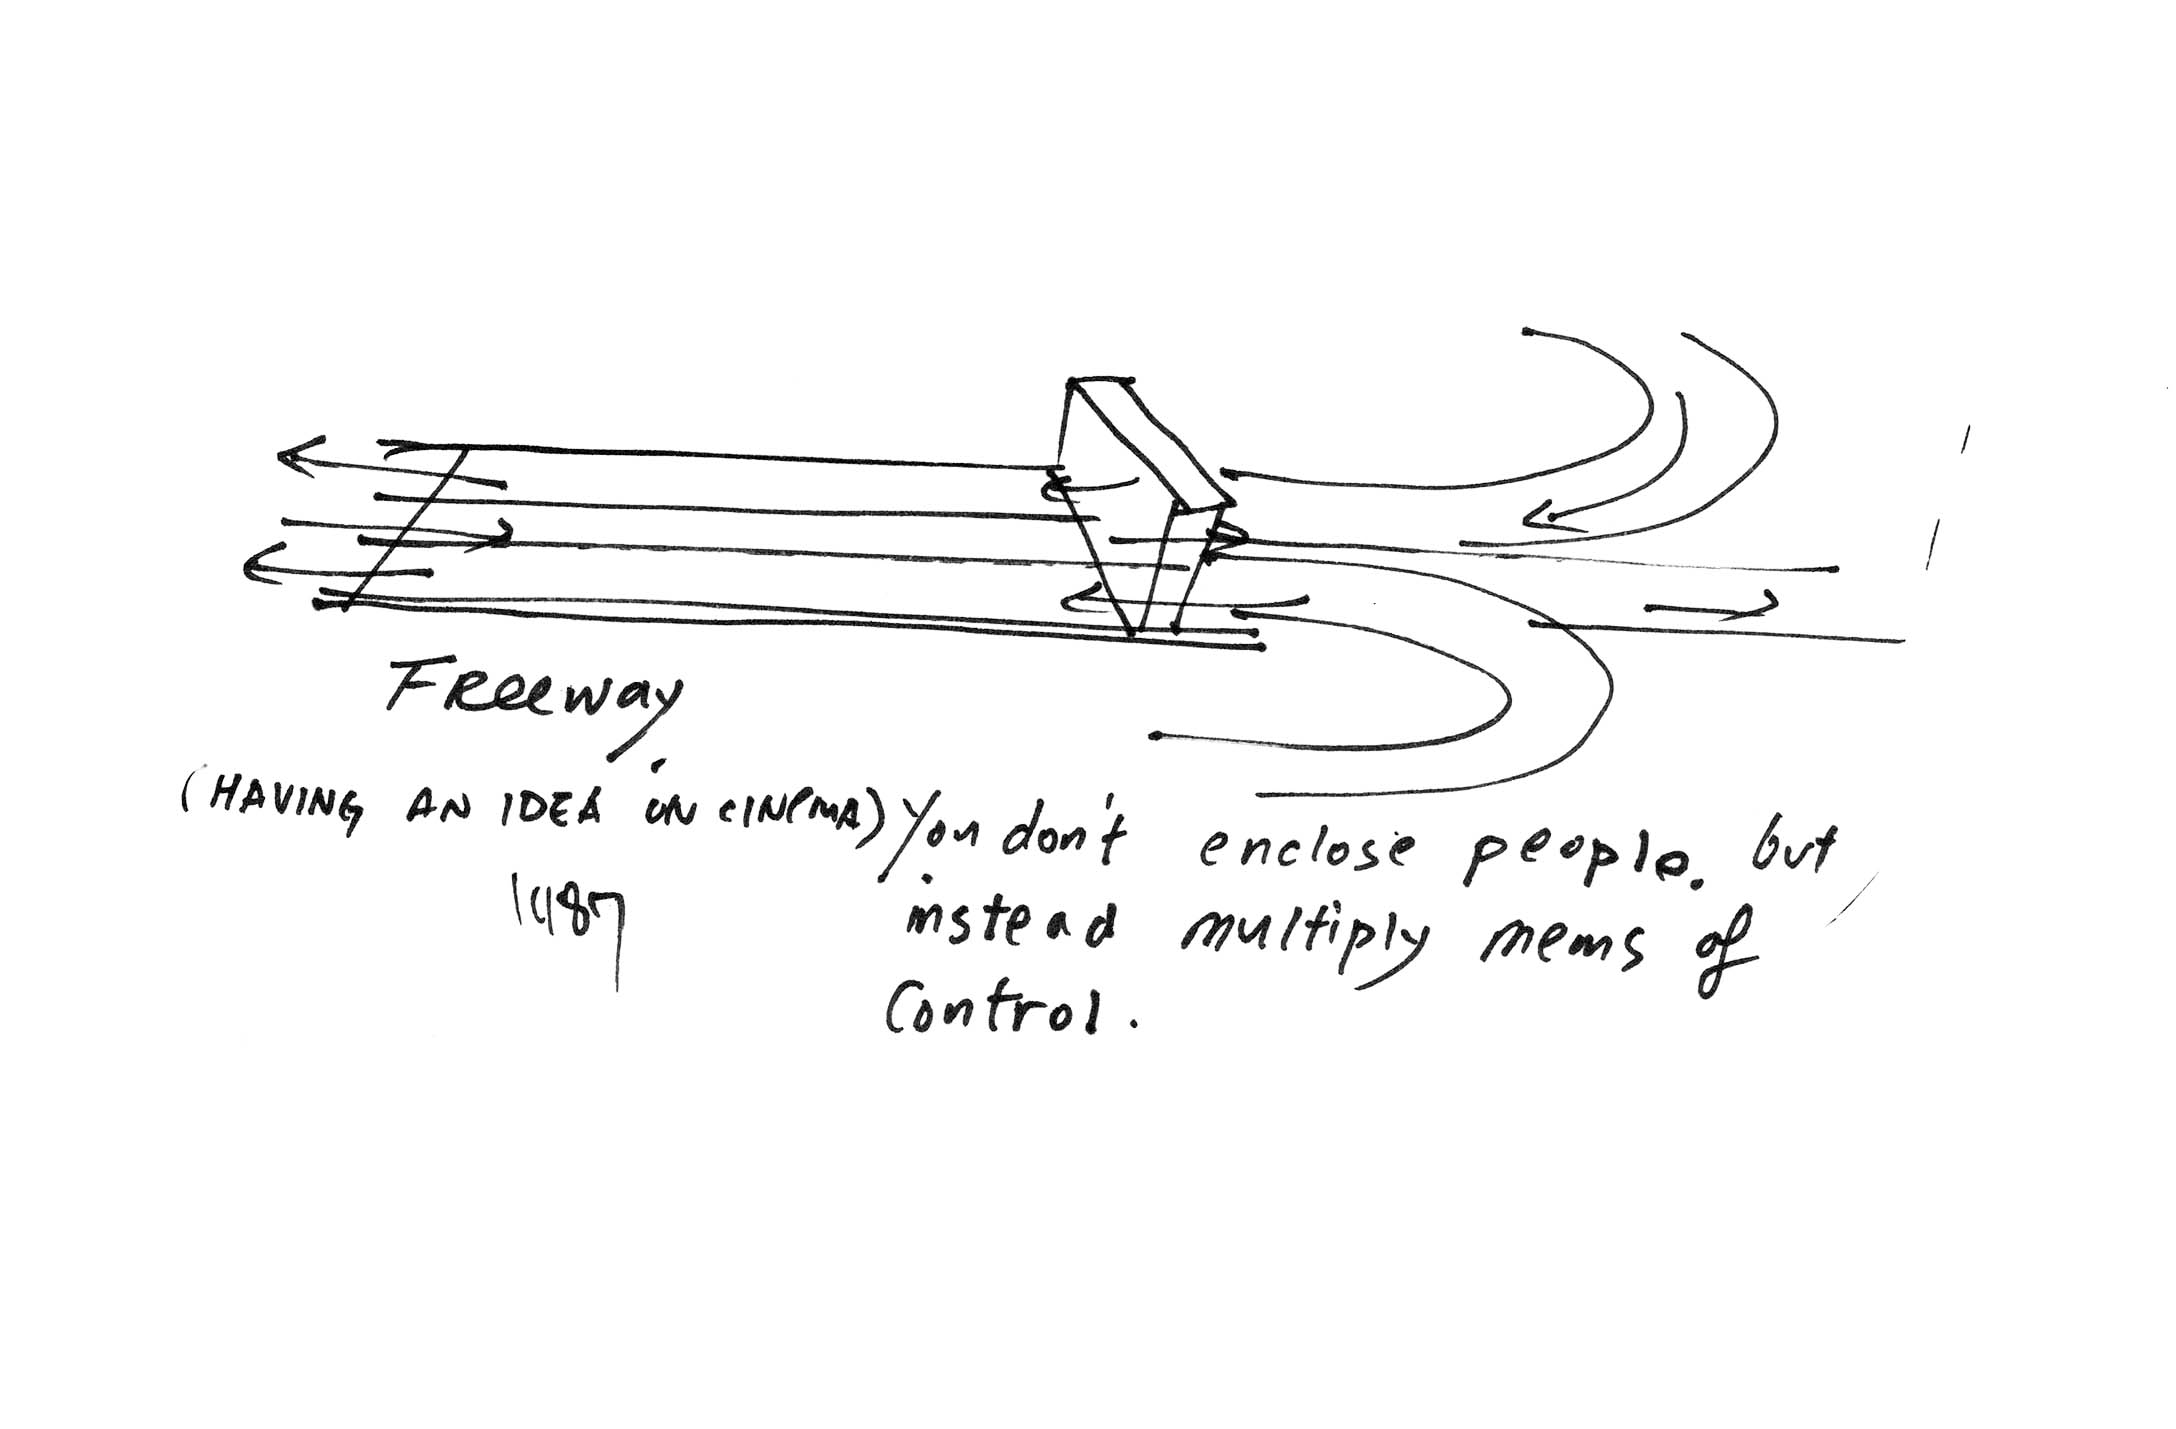 Freeway
(HAVING AN IDEA IN CINEMA) You don't enclose people. but
1987
instead multiply means of
control.